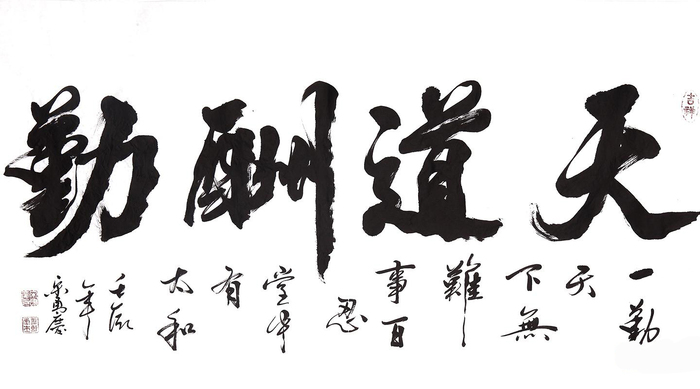 天道酬勤
吉祥
一勤
天
下無
難
事百
忍
堂中
有
太和
壬辰
年